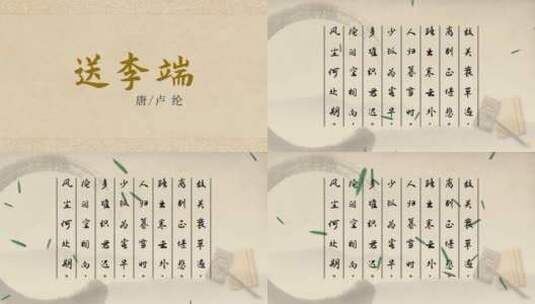 送李端
唐/卢纶
故关衰草遍。
离别正堪悲。
路出寒云外。
人归暮雪时。
少孤为客早。
多难识君迟。
掩泪空相向。
风尘何处期。
故关衰草遍。
离别正堪悲。
路出寒云外。
人归暮雪时。
少孤为客早。
多难识君迟。
掩泪空相向。
风尘何处期。
故关衰草遍。
离别正堪悲。
路出寒云外。
人归暮雪时。
少孤为客早。
多难识君迟。
掩泪空相向。
风尘何处期。